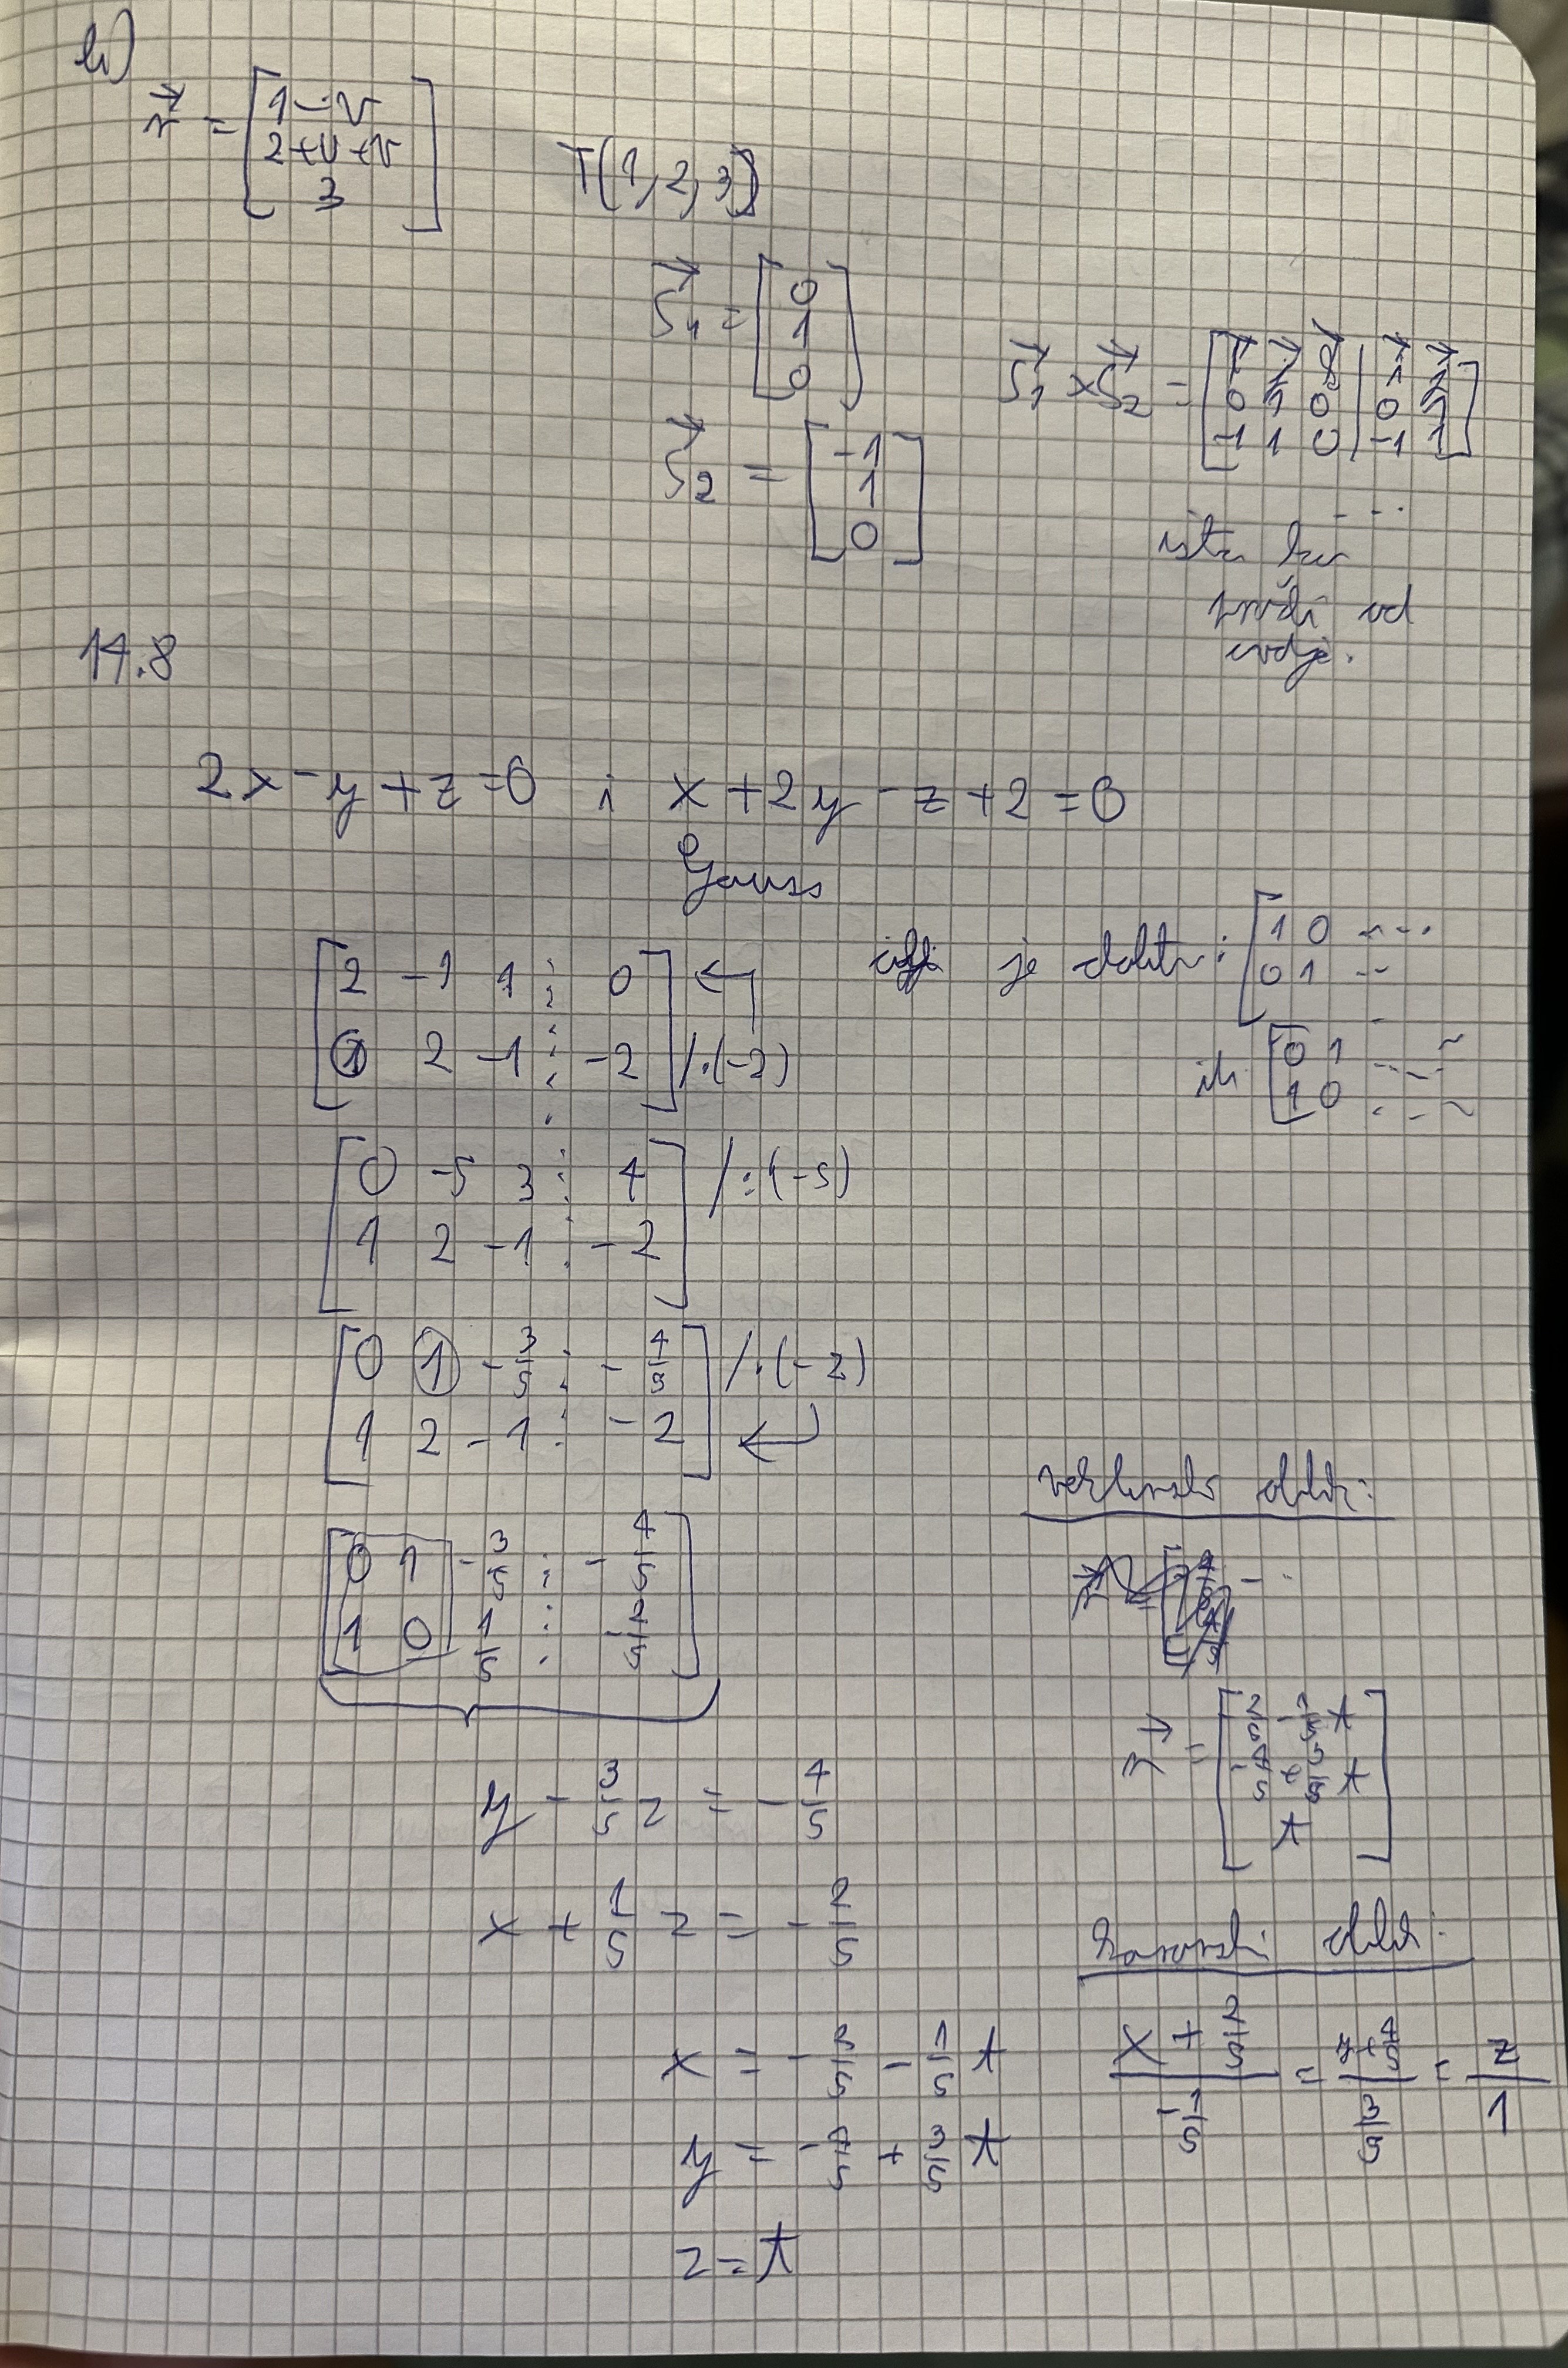 b)
r⃗ = [1-v
2+u+v
3]
T(1, 2, 3)
S⃗₁ = [0
1
0]
S⃗₂ = [-1
1
0]
S⃗₁ × S⃗₂ = [i⃗ j⃗ k⃗ | i⃗ j⃗
0 1 0 | 0 1
-1 1 0 | -1 1]
...
od
ovdje.
14.8
2x - y + z = 0 i x + 2y - z + 2 = 0
Gauss
[2 -1 1 ⋮ 0] ←
[1 2 -1 ⋮ -2] /·(-2)
cilj je dobiti: [1 0 ...
0 1 ...
ili [0 1 ...
1 0 ...
[0 -5 3 ⋮ 4] /:(-5)
[1 2 -1 ⋮ -2]
[0 1 -3/5 ⋮ -4/5] /·(-2)
[1 2 -1 ⋮ -2] ←
[0 1 -3/5 ⋮ -4/5]
[1 0 1/5 ⋮ -2/5]
y - 3/5 z = -4/5
x + 1/5 z = -2/5
x = -2/5 - 1/5 t
y = -4/5 + 3/5 t
z = t
vektorski oblik:
r⃗ = [2/5 - 1/5 t
-4/5 + 3/5 t
t]
kanonski oblik:
(x + 2/5)/(-1/5) = (y + 4/5)/(3/5) = z/1